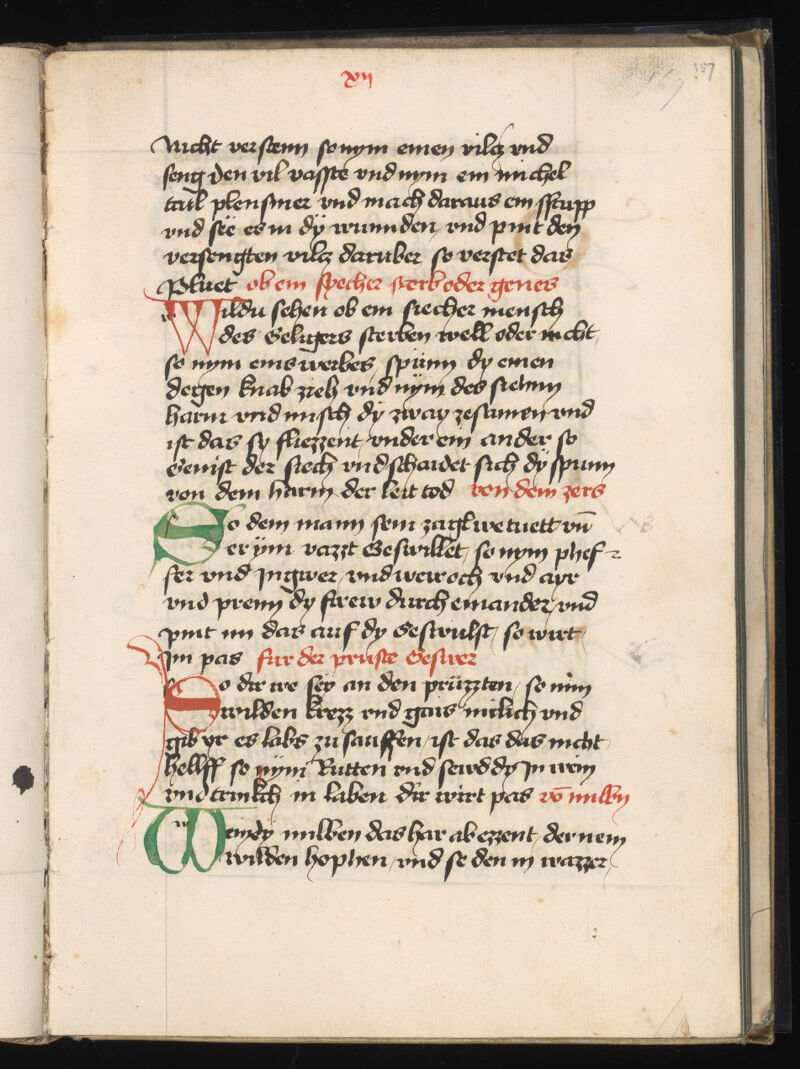 xij
157
169
nicht versten so nym einen vilcz vnd
seng den vil vasste vnd nym ein michel
tail plensmer vnd mach daraus ein sstupp
vnd see es in dÿ wunnden vnd pint den
versengten vilcz daruber so verstet das
Pluet ob ein siecher sterb oder genes
Wildu sehen ob ein siecher mensch
des geligers sterben well oder nicht
so nym eins weibes spünn dy einen
degen knab zieh vnd nym des siechnn
harm vnd misch dÿ zway zesamen vnd
ist das sy fliezzent vnder ein ander so
genist der siech vnd schaidet sich dÿ spunn
von dem harm der leit tod von dem zers
So dem mann sein zagl we tuett vn̄
er ÿm vazzt geswillet so nym phef-
fer vnd Ingwer vnd weiroch vnd ayr
vnd prenn dy strew durch einander vnd
pint im das auf dÿ geswulst so wirt
Im pas fur der pruste geswer
So dir we seÿ an den prüzzten so nim
wilden krezz vnd gais milich vnd
gib yr es labs zu sauffen ist das das nicht
hellff so nÿm Rutten vnd sewd dÿ In wein
vnd trinkch in laben dir wirt pas vō milbn
Wein dÿ milben das har ab ezzent der nem
wilden hophen vnd se den in wazzer